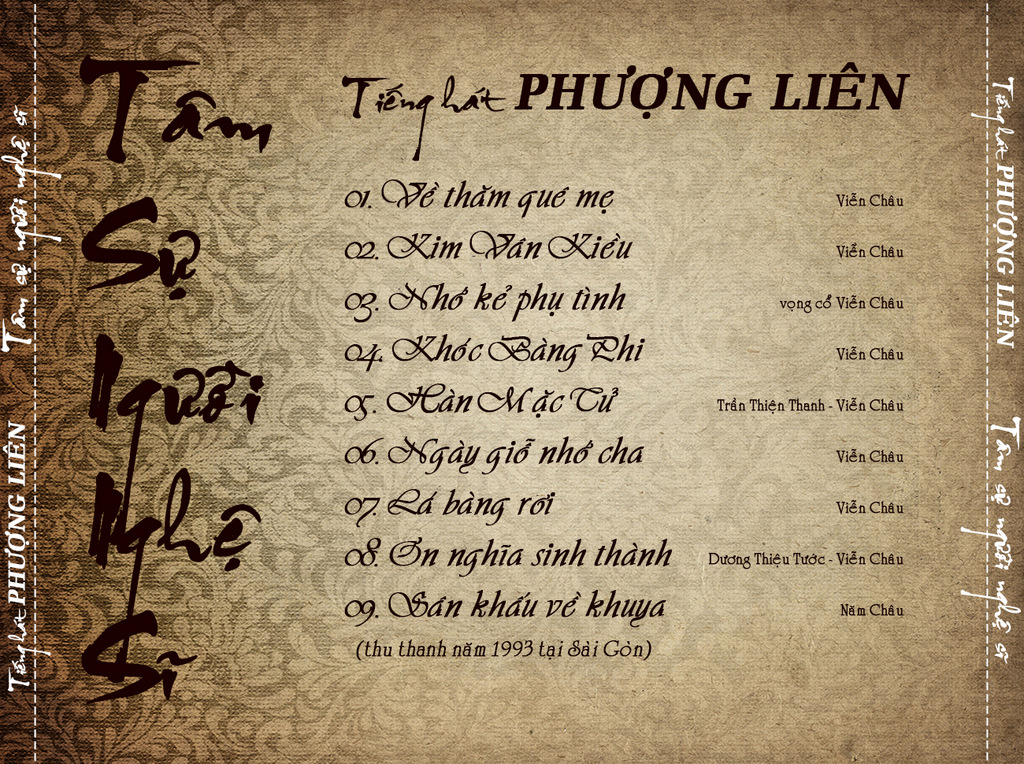 Tâm
Sự
Người
Nghệ
Sĩ
Tiếng hát PHƯỢNG LIÊN
01. Về thăm quê mẹ Viễn Châu
02. Kim Vân Kiều Viễn Châu
03. Nhớ kẻ phụ tình vọng cổ Viễn Châu
04. Khóc Bàng Phi Viễn Châu
05. Hàn Mặc Tử Trần Thiện Thanh - Viễn Châu
06. Ngày giỗ nhớ cha Viễn Châu
07. Lá bàng rơi Viễn Châu
08. Ơn nghĩa sinh thành Dương Thiệu Tước - Viễn Châu
09. Sân khấu về khuya Năm Châu
(thu thanh năm 1993 tại Sài Gòn)
Tiếng hát PHƯỢNG LIÊN Tâm sự người nghệ sĩ
Tiếng hát PHƯỢNG LIÊN Tâm sự người nghệ sĩ